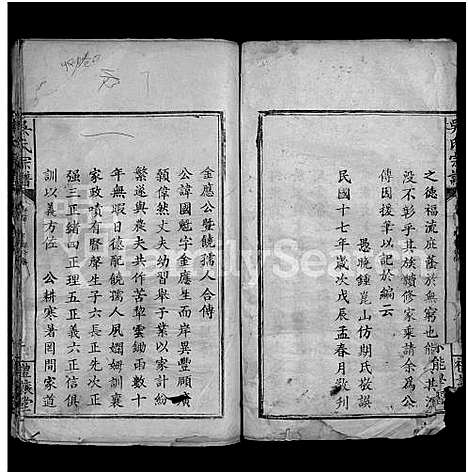 之德福流庇蔭於無窮也能
没不彰乎其族續修家乘請余為公
傳因援筆以記於編云
愚晚鍾崑山仿期氏敬譔
民國十七年歲次戊辰孟春月敬刋
金應公曁饒孺人合傳
公諱國魁字金應生而岸異豐頤廣
顙偉然丈夫幼習舉子業以家計紛
繁遂與農夫共作苦犂雲鋤雨數十
年無暇日德配饒孺人夙嫻姆訓裏
家政嘖有賢聲生子六長正先次正
强三正緒四正理五正義六正信俱
訓以義方任 公耕寒暑罔間家道
吳氏宗譜
FamilySearch